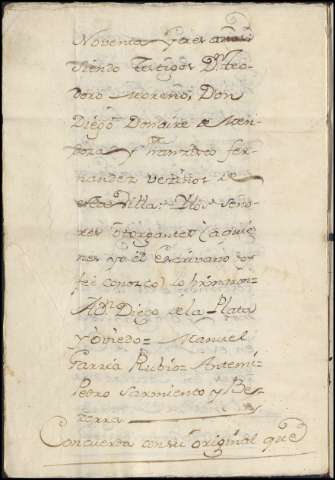 Noventa y tres años
siendo testigos Dn. Teo-
doro Moreno, Don
Diego Donaire de Men-
doza y Franzisco fer-
nandez vezinos de
esta Villa: Y los seño-
res otorgantes (a quie-
nes yo el Escrivano doy
feè conozco) lo firmaron=
Dn. Diego de la Plata
y Oviedo= Manuel
Garzia Rubio= Antemi=
Pedro Sarmiento y Bes-
terra
Concuerda con su original que